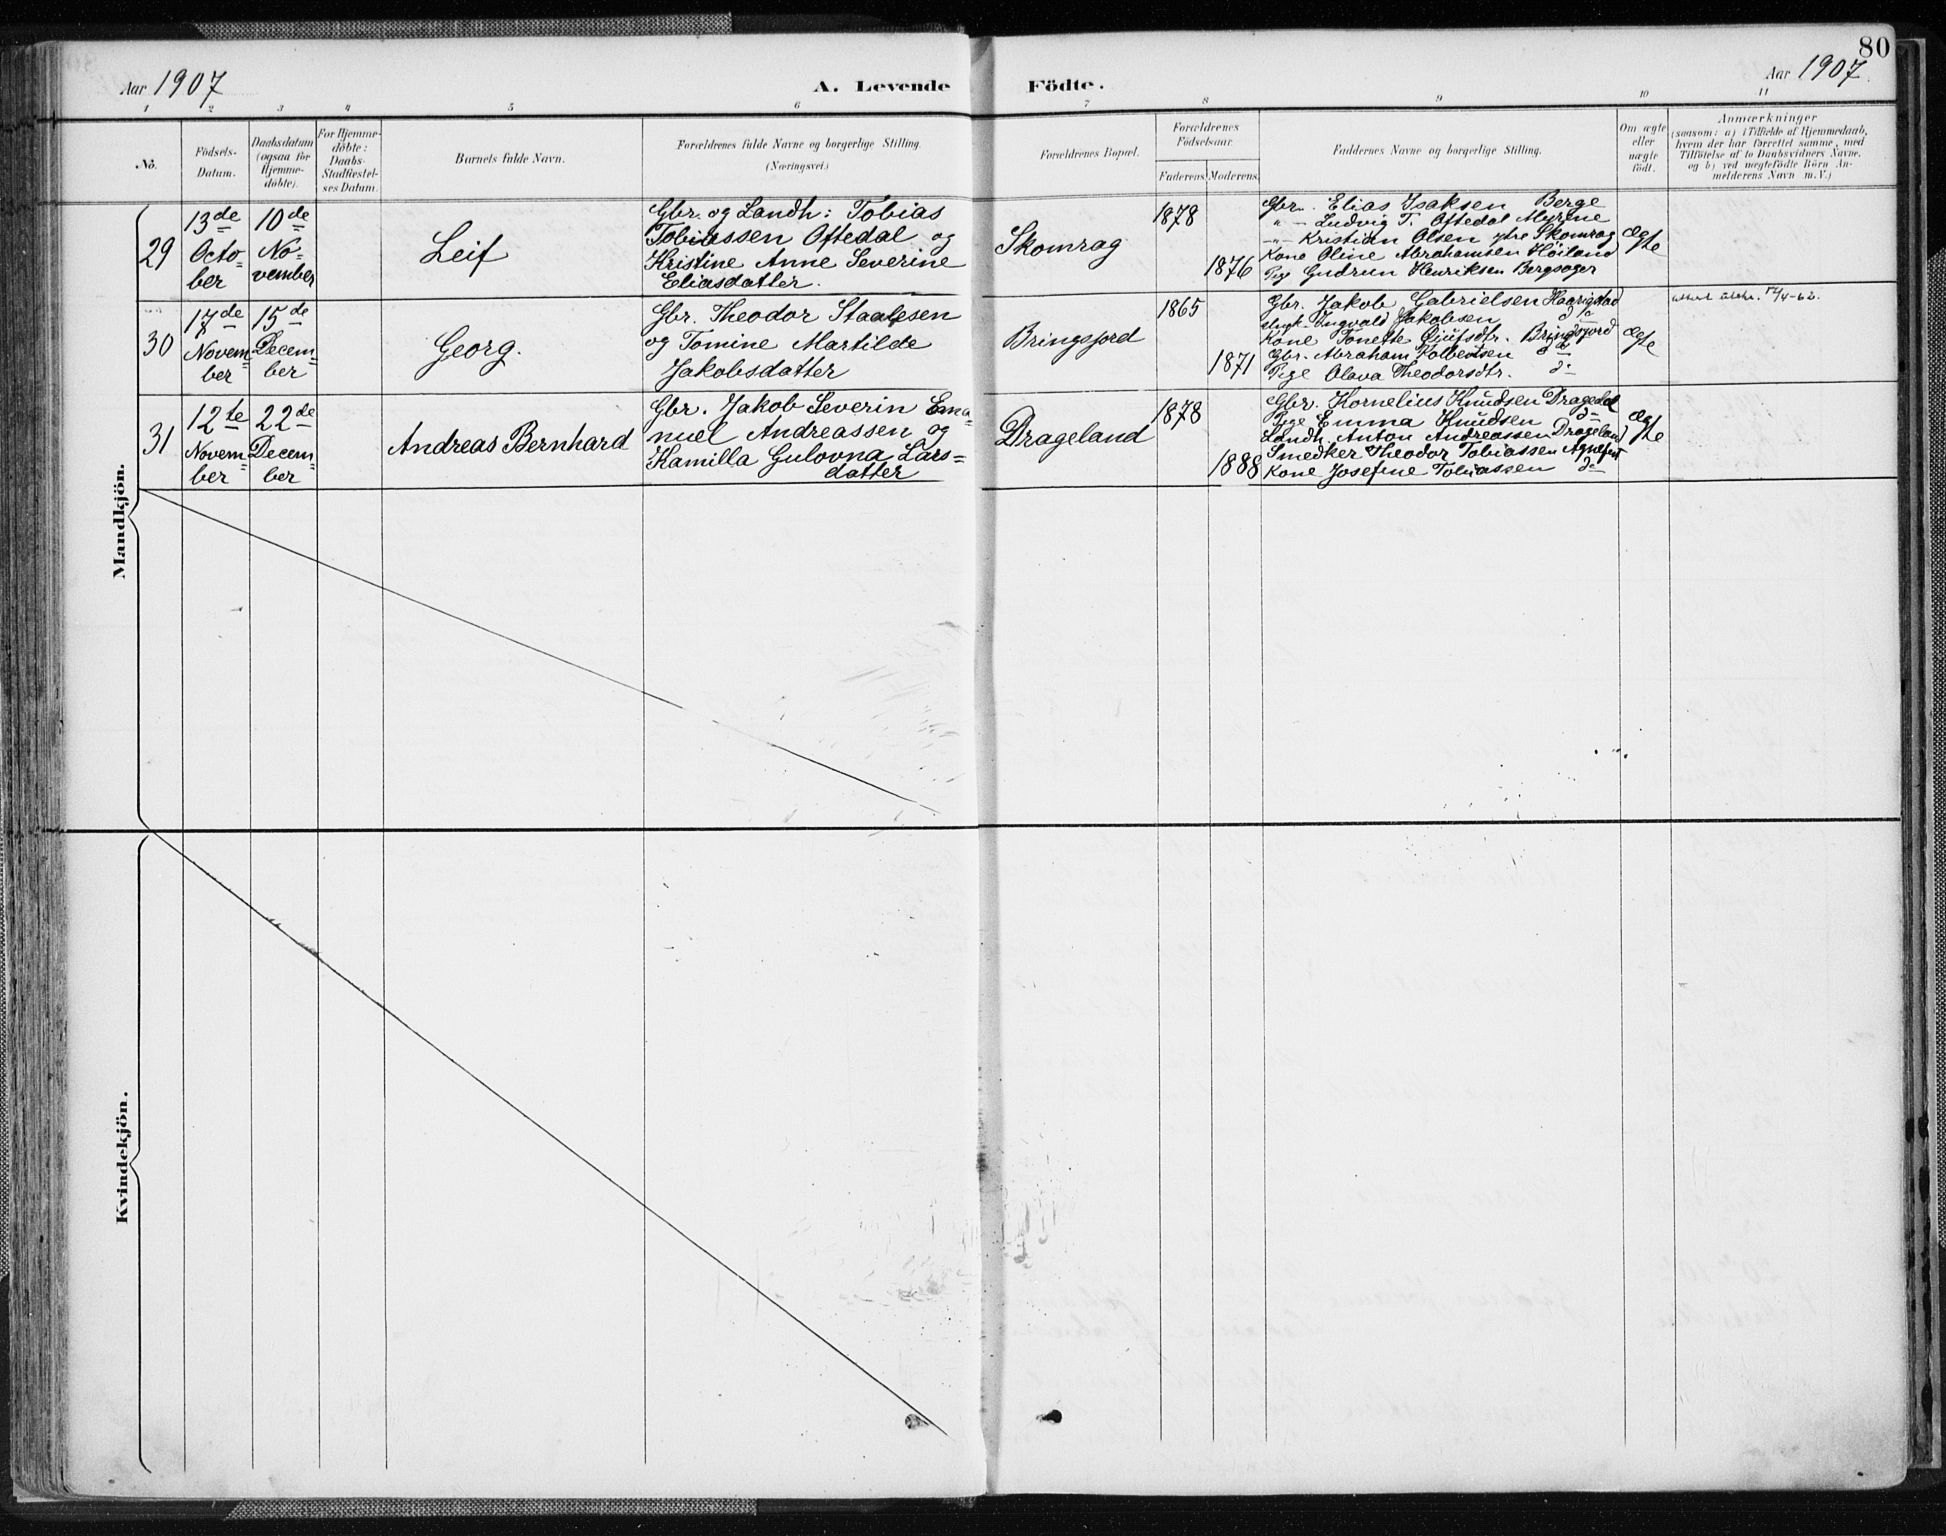 80
Aar 1907
A. Levende
Födte.
Aar 1907.
1 2 3 4 5 6 7 8 9 10 11
No.
Födsels-
Datum.
Daabsdatum
(ogsaa for
Hjemme-
döbte).
For Hjemme-
döbte:
Daabs-
Stadfæstel-
ses Datum.
Barnets fulde Navn.
Forældrenes fulde Navne og borgerlige Stilling.
(Næringsvei.)
Forældrenes Bopæl.
Forældrenes
Födselsaar.
Faderens. Moderens.
Faddernes Navne og borgerlige Stilling.
Om ægte
eller
uægte
födt.
Anmærkninger
(saasom: a) i Tilfælde af Hjemmedaab,
hvem der har forrettet samme, med
Tilföielse af to Daabsvidners Navne,
og b) ved uægtefödte Börn An-
melderens Navn m.V.)
Mandkjön.
29
13de
Octo-
ber
10de
No-
vember
Leif
Gbr. og Landh: Tobias
Tobiassen Oftedal og
Kristine Anne Severine
Eliasdatter.
Skomrag
1878
1876
Gbr. Elias Isaksen Berge
" - Ludvig T. Oftedal Myrene
" - Kristian Olsen ytre Skomrag
Kone Oline Abrahamsen Höiland
Pige Gudrun Henriksen Bergsager
ægte
30
17de
Novem-
ber
15de
Decem-
ber
Georg.
Gbr. Theodor Staalesen
og Tomine Martilde
Jakobsdatter
Bringsjord
1865
1871
Gbr. Jakob Gabrielsen Haarigstad
Ungk. Ingvald Jakobsen do
Kone Tonette Bringsjord
Gbr. Abraham Kolbentsen do
Pige Olava Theodorsdtr. do
ægte
4-62.
31
12te
Novem-
ber
22de
Decem-
ber
Andreas Bernhard
Gbr. Jakob Severin Ema-
nuel Andreassen og
Kamilla Gulovna Lars-
datter
Drageland
1878
1888
Gbr. Kornelius Knudsen Dragedal
Pige Emma Knudsen do
Landh. Anton Andreassen Drageland
Smedker Theodor Tobiassen Agnefest
Kone Josefine Tobiassen do
ægte
Kvindekjön.